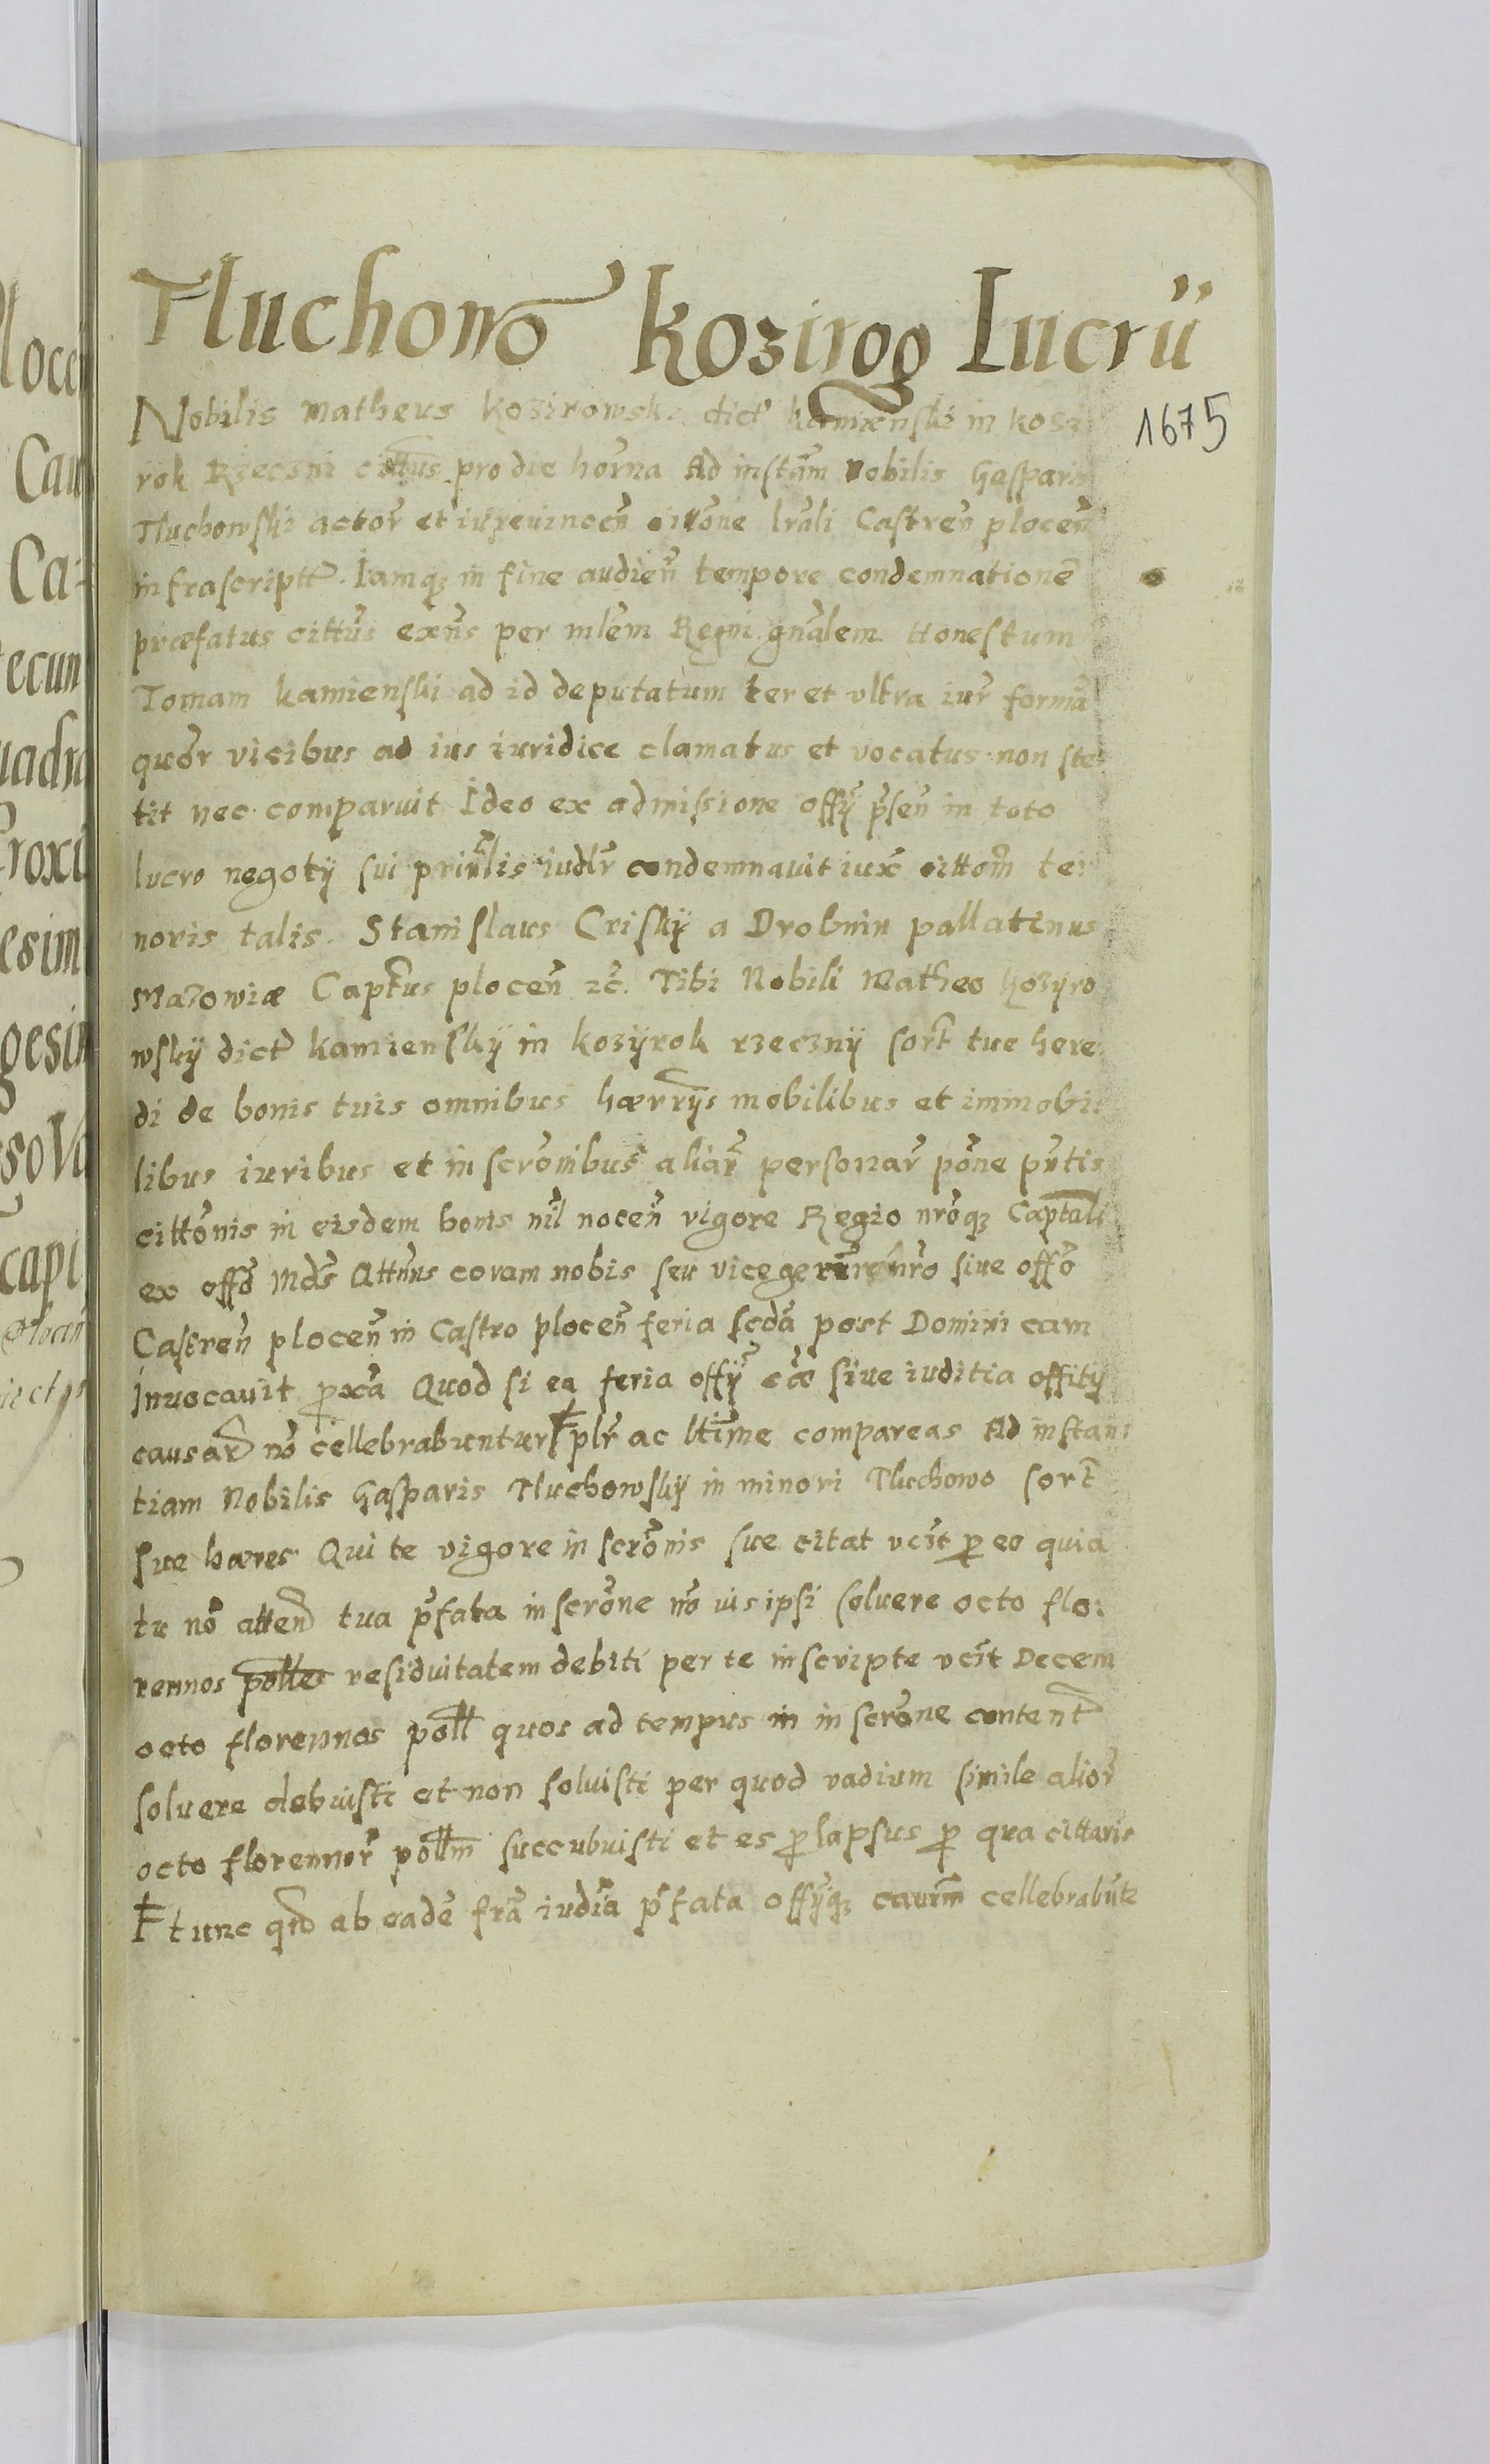 Tluchowo Kozirog Lucrũ
1675
Nobilis Matheus Kozirowski dict Kamienski in Kozi
rok Rzeczni cittus pro die horna Ad instãm Nobilis Gasparis
Tluchowski actor et citõne lrãli Castreñ ploceñ
infrascriptt. Iamq3 in fine audieñ tempore condemnationẽ
præfatus cittũs exñs per mlẽm Regni gnãlem Honestum
Tomam Kamienski ad id deputatum ter et vltra iur formã
quõr vicibus ad ius iuridice clamatus et vocatus non ste
tit nec comparuit Ideo ex admissione offÿ pr̃señ in toto
lucro negotÿ sui priñlis iudlr condemnauit iux cittom te
noris talis. Stanislaus Criskÿ a Drobnin pallatinus
Mazowiæ Captus ploceñ 2c. Tibi Nobili Matheo Kozyro
wskÿ dict Kamienskÿ in Kozÿrok rzecznÿ sort tue here
di de bonis tuis omnibus hærrÿs mobilibus et immobi
libus iuribus et inscrõnibus aliar personar põne pñtis
cittõnis in eisdem bonis nil noceñ vigore Regio nrõq3 Captali
ex offõ Mds Attñus coram nobis seu vicegerũre nrõ siue offõ
Castreñ ploceñ in Castro ploceñ feria scdã post Dominicam
Inuocauit pxã Quod si ea feria offÿ cæ siue iuditia offitÿ
causar nõ cellebrabuntur plr ac ltime compareas Ad instan
tiam Nobilis Gasparis Tluchowskÿ in minori Tluchowo sort
sue hæres Qui te vigore inscrõnis sue citat vcit p eo quia
tu nõ atteñ tua pr̃fata inscrõne nõ vis ipsi soluere octo flo
rennos polles residuitatem debiti per te inscripte vcit Decem
octo florennos poll quos ad tempus in inscrõne content
soluere debuisti et non soluisti per quod vadium simile alior
octo florennor pollm succubuisti et es plapsus p qua cittaris
tunc qd ab eadẽ frã iudĩa pr̃fata offÿq3 caurm cellebrabũt